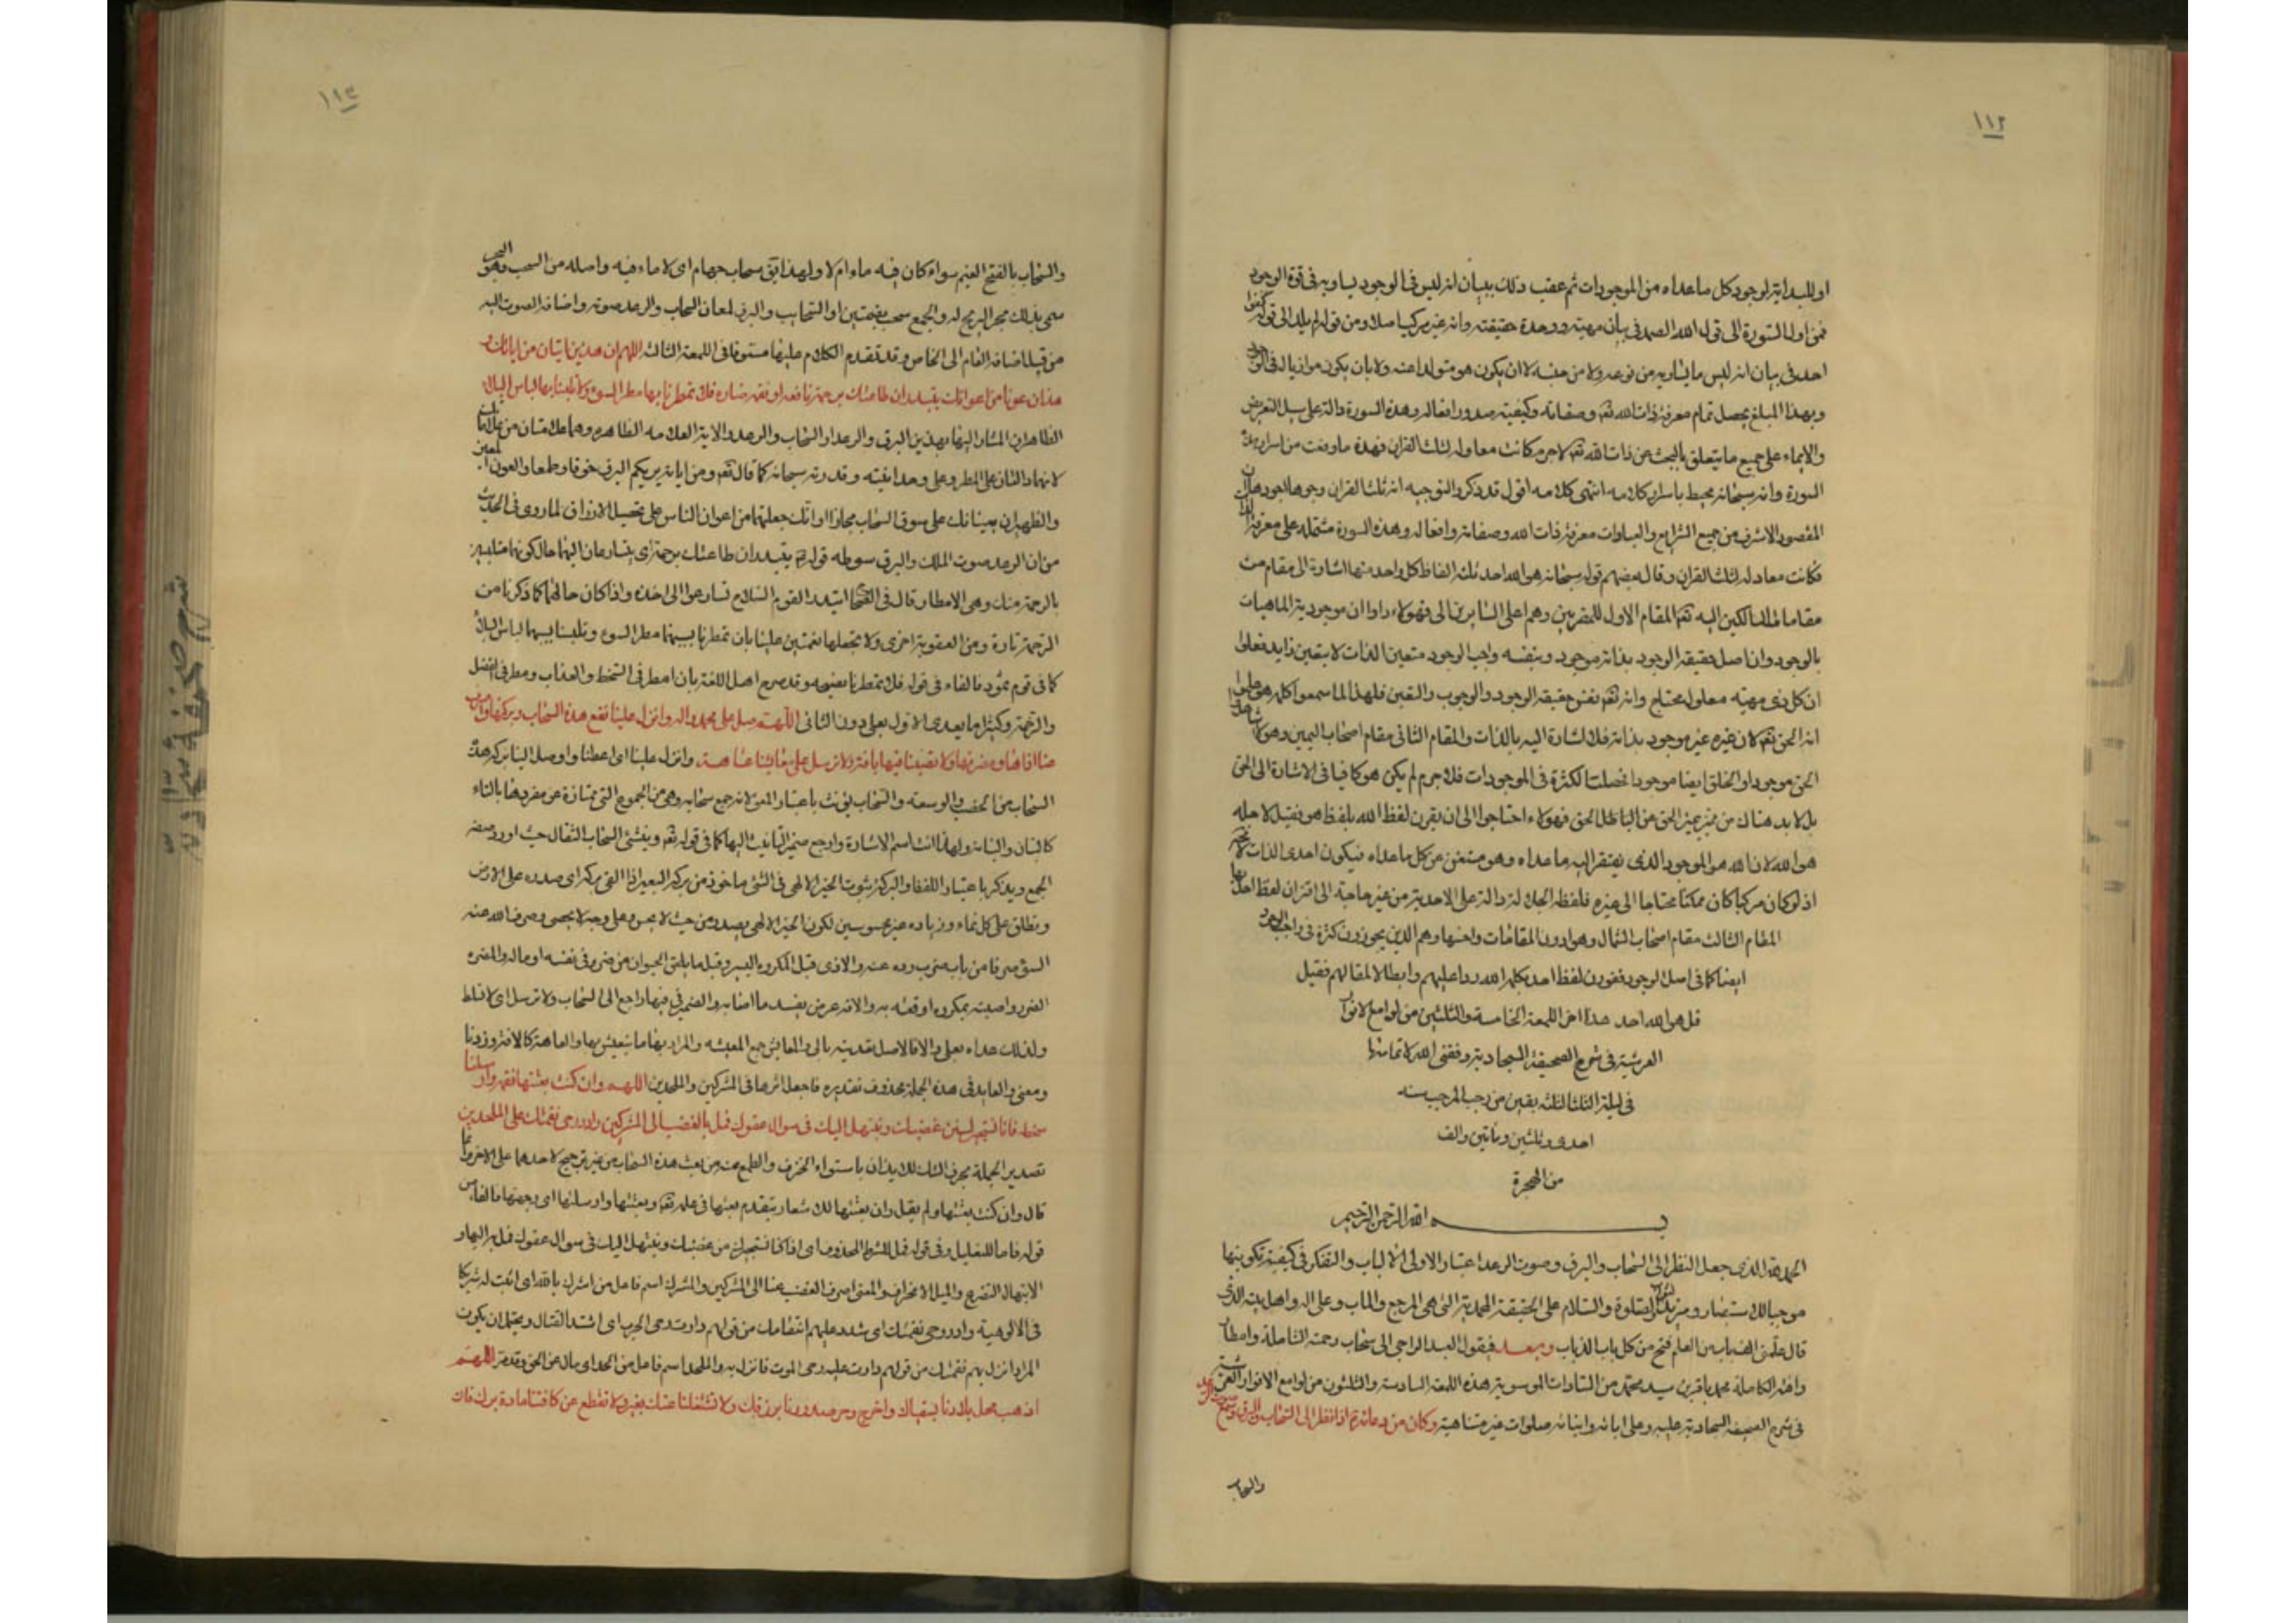 ١١٢
او للمبداية لوجود كل ما عداه من الموجودات ثم عقب ذلك ببيان انه ليس في الوجود يساويه في قوة الوجود
فمن اول السورة الى قوله الله الصمد في بيان مهيته ووحدة حقيقته وانه غير مركب اصلا ومن قوله لم يلد الى قوله كفوا
احد في بيان انه ليس ما يساويه من نوعه ولا من جنسه لا ان يكون هو متولدا عنه ولا بان يكون موازيا له في الوجود
وبهذا المبلغ يحصل تمام معرفة ذات الله تعم وصفاته وكيفية صدور افعاله وهذه السورة دالة على سبيل التعريض
والايماء على جميع ما يتعلق بالبحث عن ذات الله تعم لا جرم كانت معادلة لثلث القران فهذه ما وقفت من اسرار هذه
السورة وانه سبحانه محيط باسرار كلامه انتهى كلامه اقول قد ذكر والتوجيه انه ثلث القران وجوها اجودها ان
المقصود الاشرف من جميع الشرايع والعبادات معرفة ذات الله وصفاته وافعاله وهذه السورة مشتملة على معرفة الذات
فكانت معادلة لثلث القران وقال بعضهم قوله سبحانه هو الله احد ثلثة الفاظ كل واحد منها اشارة الى مقام من
مقامات السالكين اليه تعم المقام الاول للمقربين وهم اعلى السايرين الى فهؤلاء راوا ان موجودية الماهيات
بالوجود وان اصل حقيقة الوجود بذاته موجود وبنفسه واجب الوجود متعين الذات لا بتعين زايد فعلموا
ان كل ذي مهية معلول محتاج وانه تعم نفس حقيقة الوجود والوجوب والتعين فلهذا لما سمعوا كلمة هو علموا
انه الحق تعم لان غيره غير موجود بذاته فلا اشارة اليه بالذات والمقام الثاني مقام اصحاب اليمين وهؤلاء شاهدوا
الحق موجودا والخلق ايضا موجودا فحصلت الكثرة في الموجودات فلا جرم لم يكن هو كافيا في الاشارة الى الحق
بل لا بد هناك من مميز يميز الحق عن الباطل الحق فهؤلاء احتاجوا الى ان يقرن لفظ الله بلفظ هو فقيل لاجله
هو الله لان الله هو الموجود الذي يفتقر اليه ما عداه وهو مستغن عن كل ما عداه فيكون احدى الذات لا محة
اذ لو كان مركبا كان ممكنا محتاجا الى غيره فلفظة الجلالة دالة على الاحدية من غير حاجة الى اقتران لفظ احد بها
المقام الثالث مقام اصحاب الشمال وهو ادون المقامات واخسها وهم الذين يجوزون كثرة في واجب الوجود
ايضا كما في اصل الوجود فقورن لفظ احد بكلمة الله ردا عليهم وابطالا لمقالهم فقيل
قل هو الله احد هذا اخر اللمعة الخامسة والثلثين من لوامع الانوار
العرشية في شرح الصحيفة السجادية وفقني الله لاتمامها
في ليلة الثلثا لثلثة بقين من رجب المرجب سنه
احدى وثلثين ومأتين والف
من الهجرة
بسم الله الرحمن الرحيم
الحمد لله الذي جعل النظر الى السحاب والبرق وصوت الرعد اعتبارا لاولى الالباب والتفكر في كيفية تكوينها
موجبا للاستبصار ومزيد الثواب والصلوة والسلام على الحقيقة المحمدية التي هي المرجع والماب وعلى اله واهل بيته الذي
قال علمني الف باب من العلم فتح من كل باب الف باب وبعد فيقول العبد الراجي الى سحاب رحمته الشاملة وامطار
رافته الكاملة محمد باقر بن سيد محمد من السادات الموسوية هذه اللمعة السادسة والثلثون من لوامع الانوار العرشية
في شرح الصحيفة السجادية عليه وعلى ابائه وابنائه صلوات غير متناهية وكان من دعائه ع اذا نظر الى السحاب والبرق وسمع صوت الرعد
والسحاب
١١٣
والسحاب بالفتح الغيم سواء كان فيه ماء ام لا ولهذا يقال سحاب جهام اى لا ماء فيه واصله من السحب وهو الجر
سمى بذلك لجر الريح له والجمع سحب بضمتين او السحايب والبرق لمعان السحاب والرعد صوته واضافة الصوت اليه
من قبيل اضافة العام الى الخاص وقد تقدم الكلام عليها مستوفا في اللمعة الثالثة اللهم ان هذين ايتان من اياتك و
هذان عونان من اعوانك يبتدران طاعتك برحمة نافعة او نقمة ضارة فلا تمطرنا بهما مطر السوء ولا تلبسنا بهما لباس البلاء
الظاهر ان المشار اليها بهذين البرق والرعد او السحاب والرعد والاية العلامة الظاهرة وهما علامتان من علاماتك
لانهما دالتان على المطر وعلى وحدانيته وقدرته سبحانه كما قال تعم ومن اياته يريكم البرق خوفا وطمعا والعون المعين
والظهير اى يعينانك على سوق السحاب مجازا او انك جعلتهما من اعوان الناس على تحصيل الارزاق لما روى في الحديث
من ان الرعد صوت الملك والبرق سوطه قوله ع يبتدران طاعتك برحمة اى يتسارعان اليها حال كونهما متلبسين
بالرحمة منك وهى الامطار قال في الصحاح ابتدر القوم السلاح تسارعوا الى اخذه واذا كان حالهما كما ذكرنا من
الرحمة تارة ومن العقوبة اخرى ولا تجعلهما نقمتين علينا بان تمطرنا بسببهما مطر السوء وتلبسنا بسببهما لباس البلاء
كما في قوم ثمود فالفاء في قوله فلا تمطرنا فصيحة وقد صرح اهل اللغة بان امطر في السخط والعذاب ومطر في الفضل
والرحمة وكثيرا ما يعدى الاول بعلى دون الثاني اللهم صل على محمد واله وانزل علينا نفع هذه السحاب وبركتها واصرف
عنا اذاها ومضرتها ولا تصبنا فيها بافة ولا ترسل على معايشنا عاهة وانزل علينا اى اعطنا واوصل الينا بركة هذه
السحاب من الخصب والوسعة والسحاب يؤنث باعتبار المعنى لانه جمع سحابة وهى من الجموع التي ممتازة عن مفردها بالتاء
كالبنان والبنانة ولهذا انث اسم الاشارة وارجع ضمير التانيث اليها كما في قوله تعم وينشئ السحاب الثقال حيث اورد صفة
الجمع ويذكر باعتبار اللفظ والبركة ثبوت الخير الالهى في الشئ ماخوذ من برك البعير اذا القى بركه اى صدره على الارض
ويطلق على كل نماء وزيادة غير محسوسين لكون الخير الالهى يصدر من حيث لا يحس وعلى وجه لا يحصى وصرف الله عنه
السوء صرفا من باب ضرب رده عنه والاذى قيل المكروه اليسير وقيل ما يلحق الحيوان من ضرر في نفسه او ماله والمضرة
الضرر واصبته بمكروه اوقعته به والافة عرض يفسد ما اصابه والضمير في فيها راجع الى السحاب ولا ترسل اى لا تسلط
ولذلك عداه بعلى والا فالاصل تعديته بالى والمعايش جمع المعيشة والمراد بها ما يتعيش بها والعاهة كالافة وزنا
ومعنى والعايد في هذه الجملة محذوف تقديره فاجعل اثرها في المشركين والملحدين اللهم وان كنت بعثتها نقمة وارسلتها
سخطة فانا نستجيرك من غضبك ونبتهل اليك في سؤال عفوك فمل بالغضب الى المشركين وادر رحى نقمتك على الملحدين
تصدير الجملة بحرف الشك للايذان باستواء الخوف والطمع عنه من بعث هذه السحاب من غير ترجيح لاحدهما على الاخر وانما
قال وان كنت بعثتها ولم يقل وان بعثتها للاشعار بتقدم بعثها في علمه تعم وبعثتها وارسلتها اى وجهتها فالفاء من
قوله فانا للتعليل وفى قوله فمل للشرط المحذوف اى اذا كنا نستجيرك من غضبك ونبتهل اليك في سؤال عفوك فمل
الابتهال التضرع والميل الانحراف والمعنى اصرف الغضب عنا الى المشركين والمشرك اسم فاعل من اشرك بالله اى اثبت له شريكا
في الالوهية وادر رحى نقمتك اى شدد عليهم انتقامك من قولهم دارت رحى الحرب اى اشتد القتال ويحتمل ان يكون
المراد انزل بهم نقمتك من قولهم دارت عليه رحى الموت فانزل به والملحد اسم فاعل من الحد اى مال عن الحق اللهم
اذهب محل بلادنا بسقياك واخرج وحر صدورنا برزقك ولا تشغلنا عنك بغيرك ولا تقطع عن كافتنا مادة برك فان
شرح صحيفة سجاديه